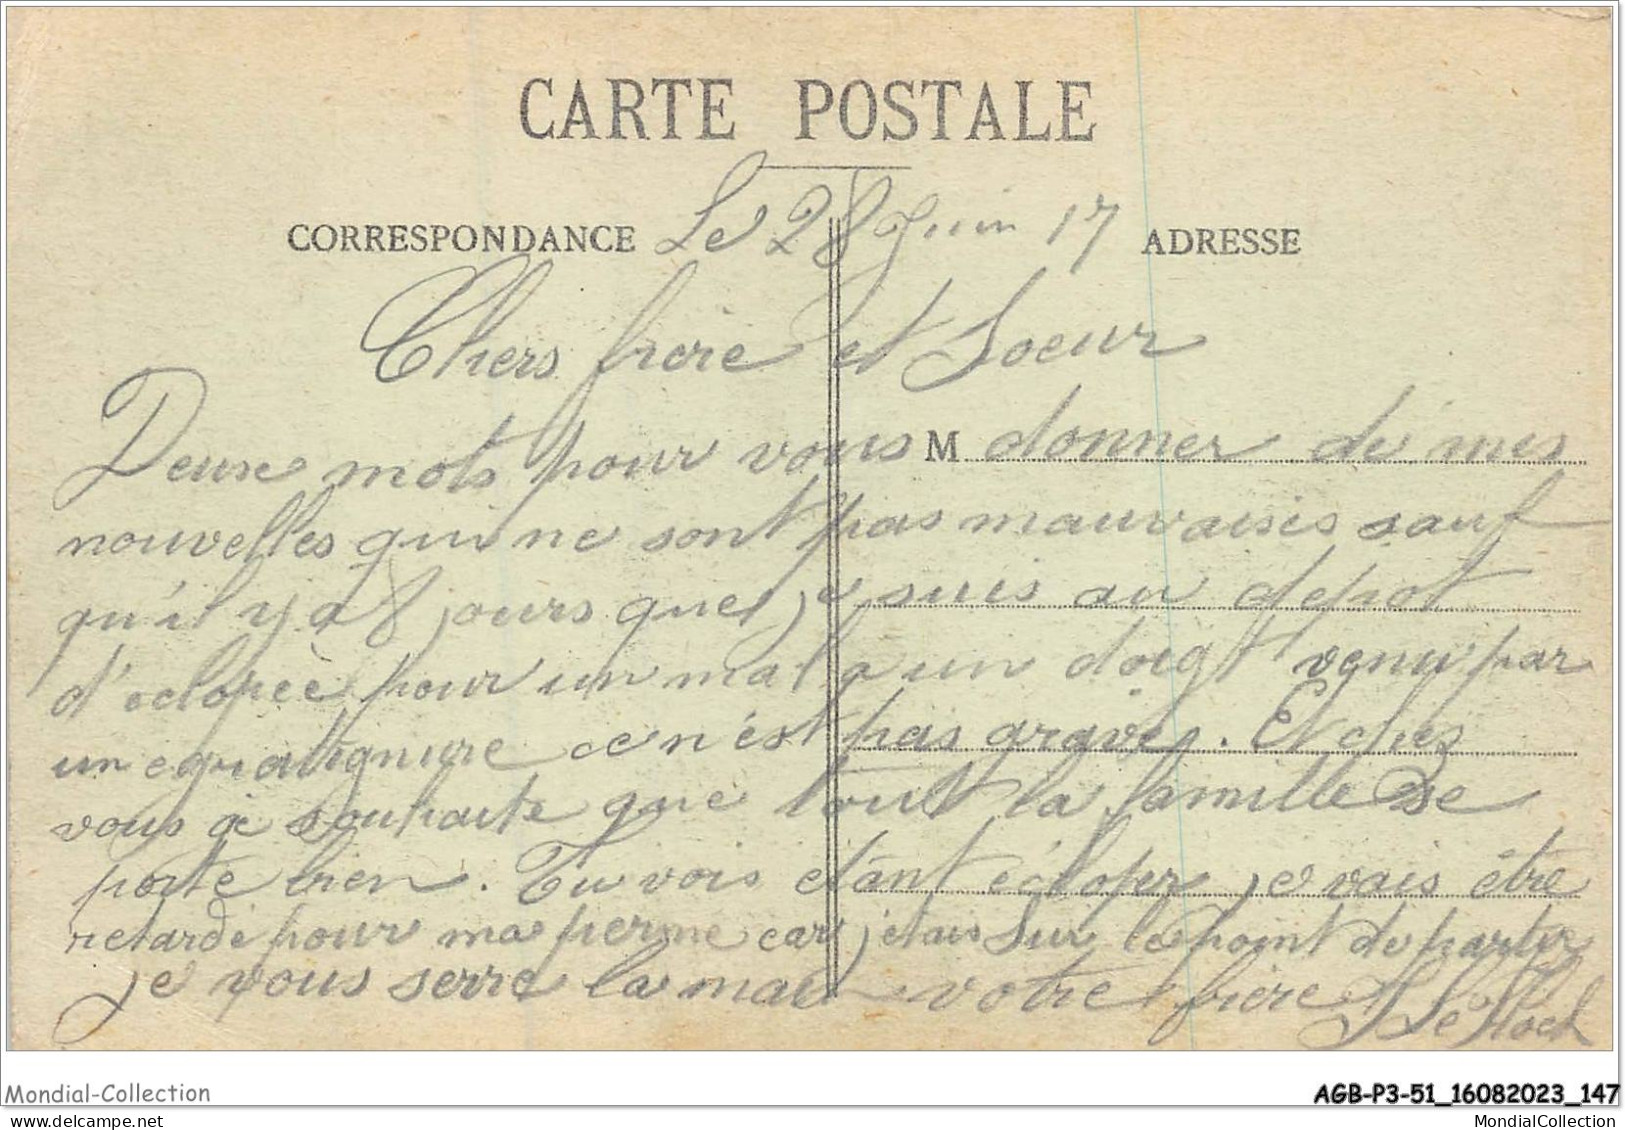 CARTE POSTALE
CORRESPONDANCE Le 28 Juin 17 ADRESSE
Chers frère et Soeur
Deux mots pour vous M donner de mes
nouvelles qui ne sont pas mauvaises sauf
qu'il y a 8 jours que je suis au depot
d'eclopée pour un mal a un doigt venu par
un egratignure ce n'est pas grave. Et chez
vous je souhaite que tout la famille se
porte bien. Tu vois etant écloper je vais être
retardé pour ma perme car j'etais Sur le point de partir
je vous serre la main votre frère
Mondial-Collection
AGB-P3-51_16082023_147
MondialCollection
MondialCollection